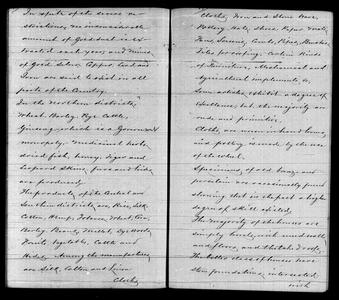 In spite of the severe re-
strictions, an inconsiderable
amount of Gold dust is ex-
tracted each year and mines
of Gold Silver, Copper, Lead and
Iron are said to exist in all
parts of the Country.
In the Northern districts,
Wheat, Barley, Rye, Cattle,
Ginseng, which is a Government
monopoly, medicinal herbs,
dried fish, honey, Tiger and
Leopard Skins, furs and hides
are produced.
The products of the Central and
Southern districts, are Rice, Silk,
Cotton, Hemp, Tobacco, Wheat,
Barley, Beans, Millet,
Fruits, Vegetables, Cattle and
Hides. Among the manufactures
are Silk, Cotton, and Linen
Cloths,
Cloths, Iron and Stone Ware,
Pottery, Hats, Shoes, Paper,
Fans, Screens, Combs, Pipes, Brushes,
Tiles for roofing, Certain kinds
of Furniture, Mechanical and
Agricultural implements, &c.
Some articles exhibit a degree of
excellence, but the majority are
rude and primitive.
Cloths, are woven in hand looms,
and pottery is made by the use
of the wheel.
Specimens, of old bronze and
porcelain are occasionally found
showing that in the past a high
degree of skill existed.
The majority of the houses are
simply hovels, with mud walls,
and floors, and thatched roofs.
The better class of houses have
stone foundations, intersected
with